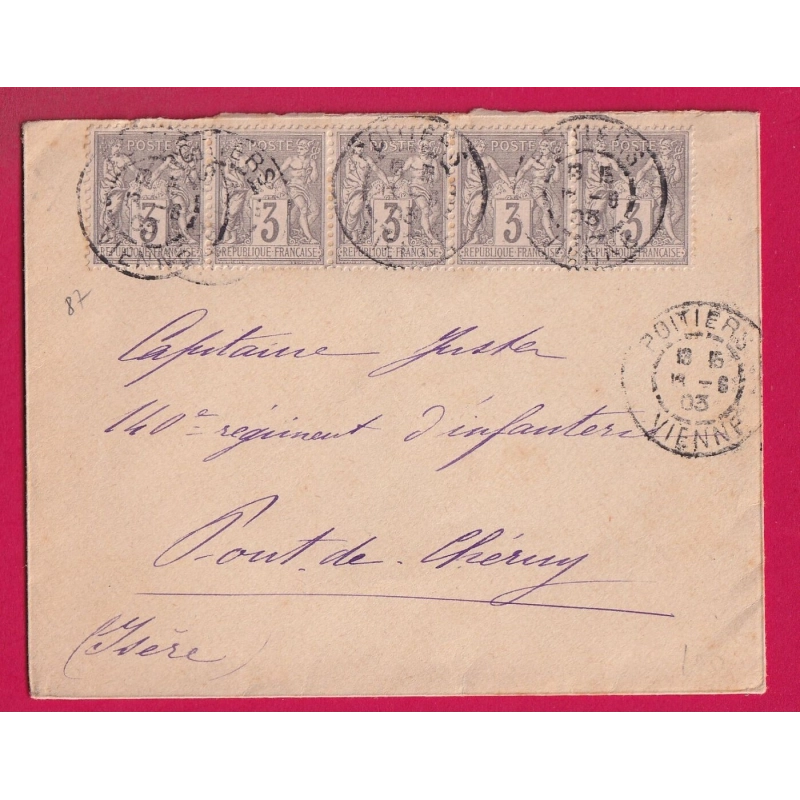 POSTE POSTE POSTE POSTE POSTE
3 3 3 3 3
REPUBLIQUE FRANÇAISE REPUBLIQUE FRANÇAISE REPUBLIQUE FRANÇAISE REPUBLIQUE FRANÇAISE REPUBLIQUE FRANÇAISE
87
Capitaine Juster
POITIERS
18 15
-6
03
VIENNE
140e régiment d'infanterie
Pont-de-Chéruy
(Isère)